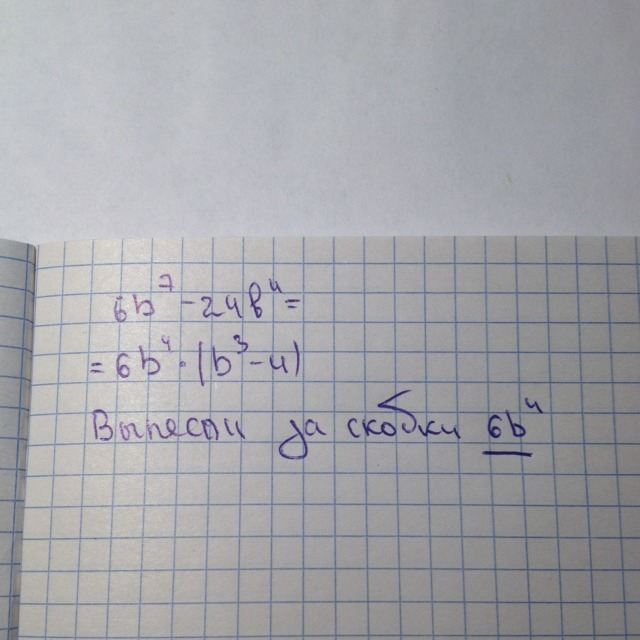 6b⁷-24b⁴=
=6b⁴·(b³-4)
Вынесли за скобки 6b⁴